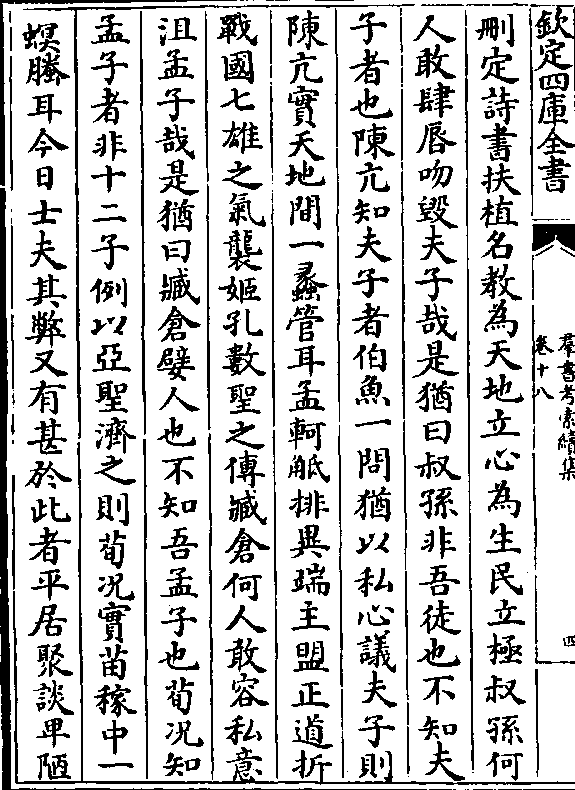 欽定四庫全書
羣書考索續集
卷十八
四
刪定詩書扶植名教為天地立心為生民立極叔孫何
人敢肆唇吻毀夫子哉是猶曰叔孫非吾徒也不知夫
子者也陳亢知夫子者伯魚一問猶以私心議夫子則
陳亢實天地間一蠡管耳孟軻觝排異端主盟正道折
戰國七雄之氣襲姬孔數聖之傳臧倉何人敢容私意
沮孟子哉是猶曰臧倉嬖人也不知吾孟子也荀况知
孟子者非十二子例以亞聖濟之則荀况實苗稼中一
螟螣耳今日士夫其弊又有甚於此者平居聚談卑陋